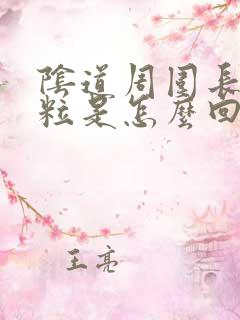 陰道周圍長
粒是怎麼回
王亮